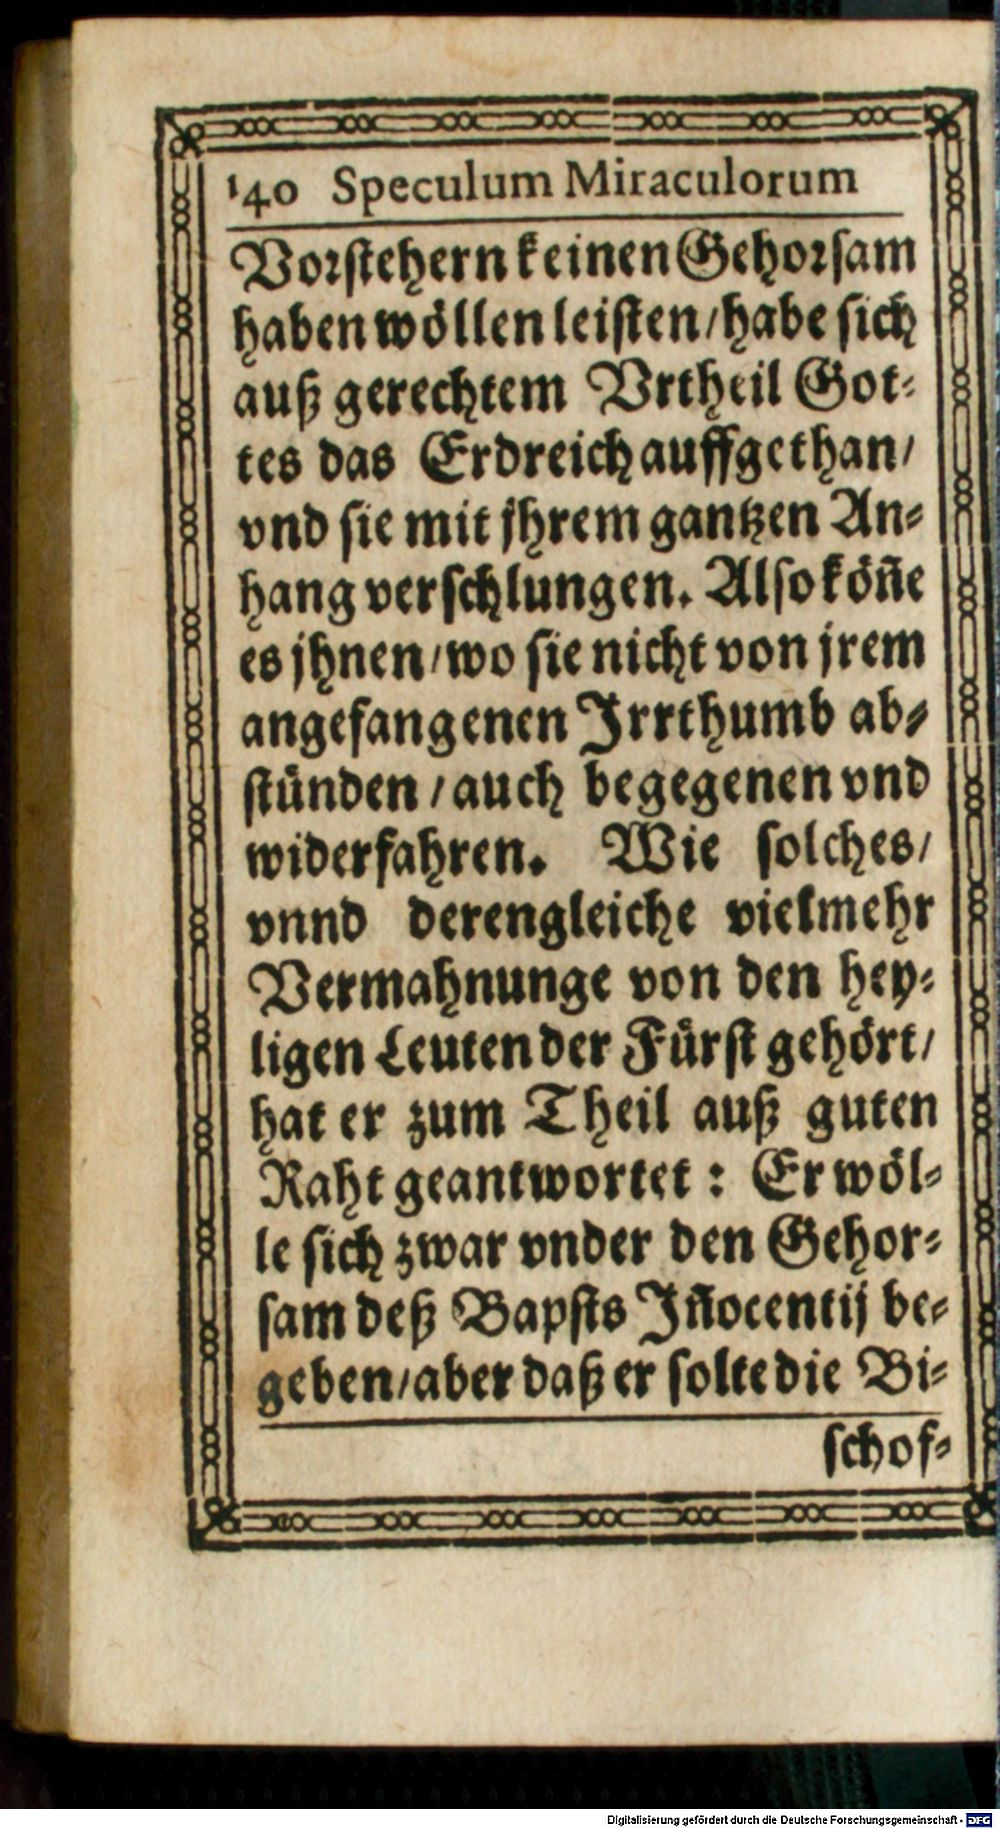 140 Speculum Miraculorum
Vorstehern keinen Gehorsam
haben wöllen leisten/habe sich
auß gerechtem Vrtheil Got-
tes das Erdreich auffgethan/
vnd sie mit jhrem gantzen An-
hang verschlungen. Also köñe
es jhnen/wo sie nicht von jrem
angefangenen Irrthumb ab-
stünden/auch begegenen vnd
widerfahren. Wie solches/
vnnd derengleiche vielmehr
Vermahnunge von den hey-
ligen Leuten der Fürst gehört/
hat er zum Theil auß guten
Raht geantwortet: Er wöl-
le sich zwar vnder den Gehor-
sam deß Bapsts Iñocentij be-
geben/aber daß er solte die Bi-
schof-
Digitalisierung gefördert durch die Deutsche Forschungsgemeinschaft - DFG